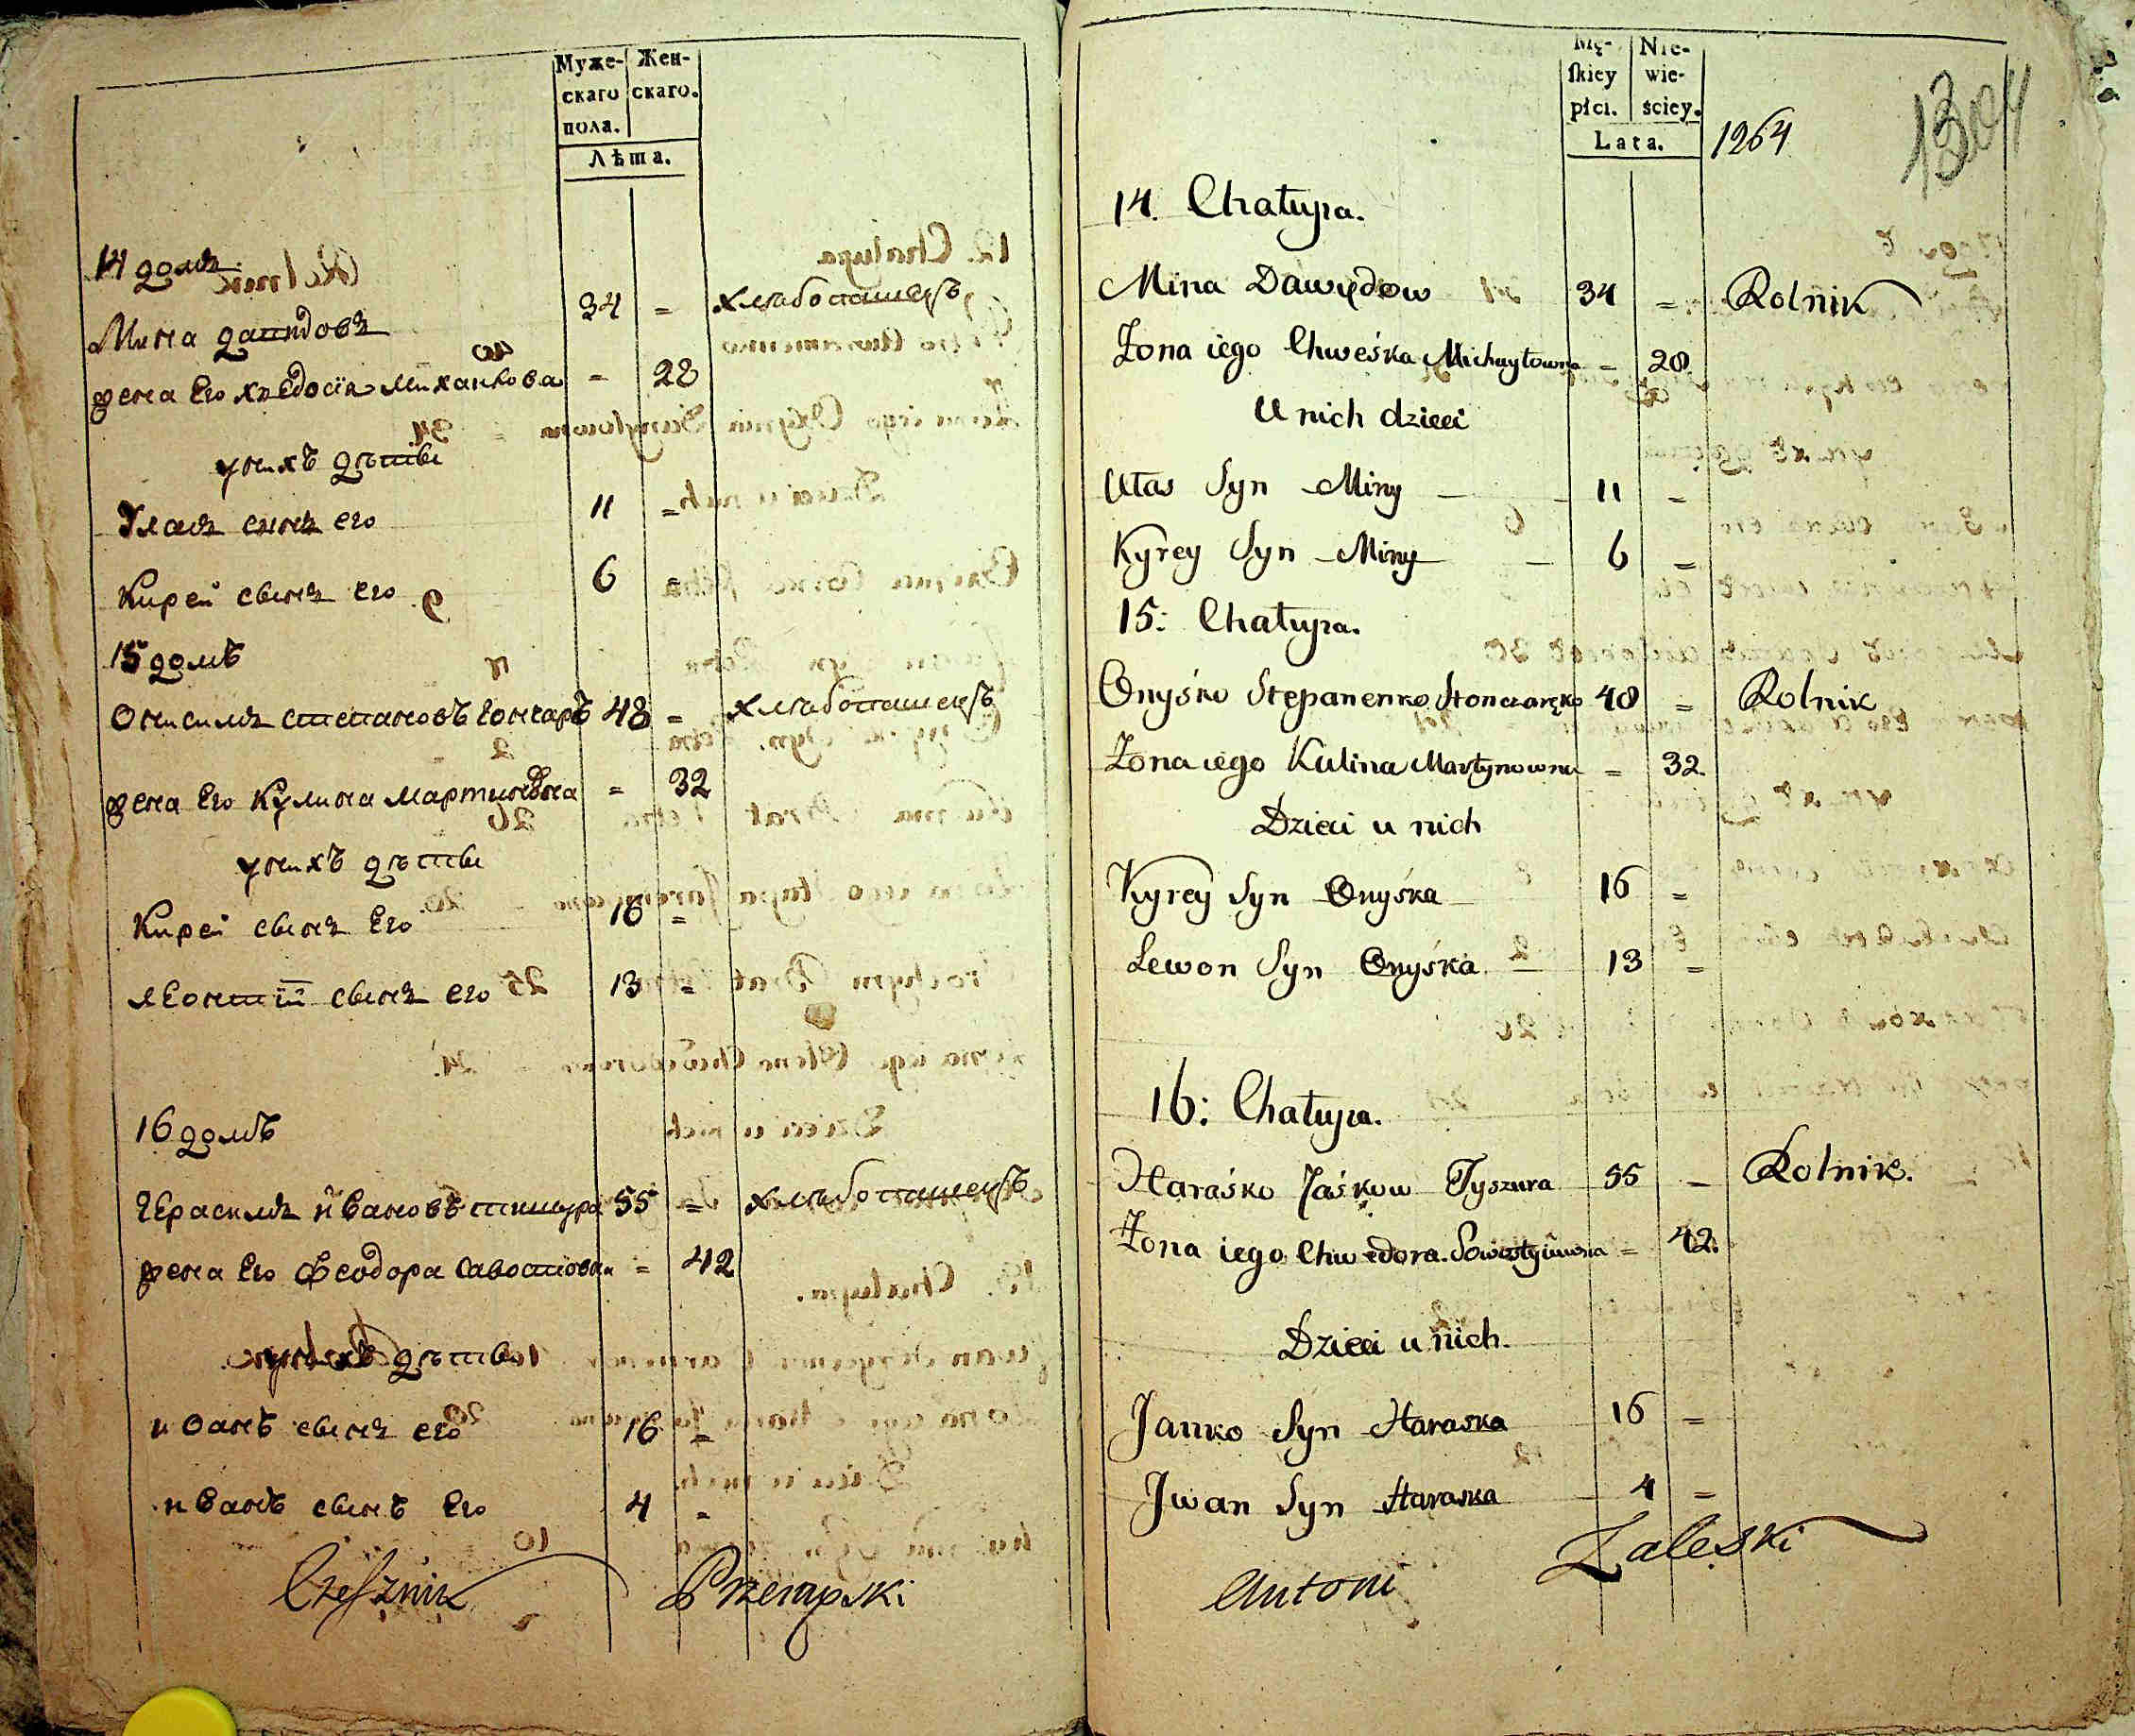 Муже- Жен-
скаго скаго.
пола.
Лѣта.
14 домъ
Мина давидовъ 34 = хлѣбопашецъ
жена Его хведосія михайлова = 28
унихъ дѣтѣ
Уласъ сынъ его 11 =
Кирей сынъ его 6
15 домъ
Онисимъ степановъ гончаръ 48 = хлѣбопашецъ
жена Его Кулина мартинова = 32
унихъ дѣты
Кирей сынъ Его 16 =
леонтій сынъ его 13 =
16 домъ
Герасимъ ивановъ тишура 55 = хлѣбопашецъ
жена Его Феодора савостiова = 42
унихъ дѣты
иоанъ сынъ его 16 =
иванъ сынъ Его 4 =
Cześnik Przemyski
Mę- Nie-
skiey wie-
płci. ściey.
Lata.
1264
1304
14. Chałupa.
Mina Dawydow 34 = Rolnik
Żona iego Chweśka Michayłowna = 28
U nich dzieci
Ułas Syn Miny — 11 =
Kyrey Syn Miny — 6 =
15: Chałupa.
Onyśko Stepanenko Honczaręko 48 = Rolnik
Żona iego Kulina Martynowna = 32
Dzieci u nich
Kyrey Syn Onyśka 16 =
Lewon Syn Onyśka — 13 =
16: Chałupa.
Haraśko Jaśkow Tyszura 55 — Rolnik.
Żona iego Chwedora = 42
Dzieci u nich.
Janko Syn Haraska 16 =
Jwan Syn Haraska 4 =
Antoni Zaleski